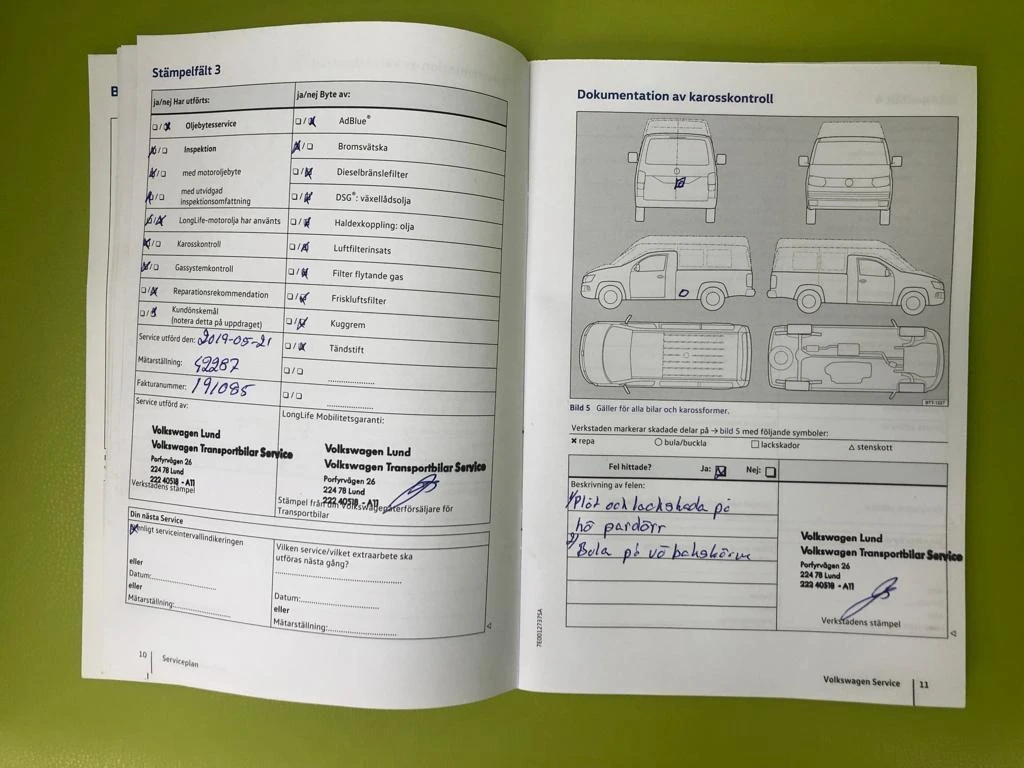 Stämpelfält 3
ja/nej Har utförts:
ja/nej Byte av:
Oljebytesservice
AdBlue®
Inspektion
Bromsvätska
med motoroljebyte
Dieselbränslefilter
med utvidgad
inspektionsomfattning
DSG®: växellådsolja
LongLife-motorolja har använts
Haldexkoppling: olja
Karosskontroll
Luftfilterinsats
Gassystemkontroll
Filter flytande gas
Reparationsrekommendation
Friskluftsfilter
Kundönskemål
(notera detta på uppdraget)
Kuggrem
Service utförd den: 2019-05-21
Tändstift
Mätarställning: 42287
Fakturanummer: 191085
Service utförd av:
LongLife Mobilitetsgaranti:
Volkswagen Lund
Volkswagen Transportbilar Service
Porfyrvägen 26
224 78 Lund
222 40518 - A11
Verkstadens stämpel
Volkswagen Lund
Volkswagen Transportbilar Service
Porfyrvägen 26
224 78 Lund
222 40518 - A11
Stämpel från din Volkswagenåterförsäljare för
Transportbilar
Din nästa Service
enligt serviceintervallindikeringen
eller
Datum:
eller
Mätarställning:
Vilken service/vilket extraarbete ska
utföras nästa gång?
Datum:
eller
Mätarställning:
10 Serviceplan
Dokumentation av karosskontroll
Bild 5 Gäller för alla bilar och karossformer.
Verkstaden markerar skadade delar på → bild 5 med följande symboler:
repa
bula/buckla
lackskador
stenskott
Fel hittade? Ja: Nej:
Beskrivning av felen:
1) Plåt och lackskada på
hö pardörr
2) Bula på vä bakskärm
Volkswagen Lund
Volkswagen Transportbilar Service
Porfyrvägen 26
224 78 Lund
222 40518 - A11
Verkstadens stämpel
7E0012737SA
Volkswagen Service 11